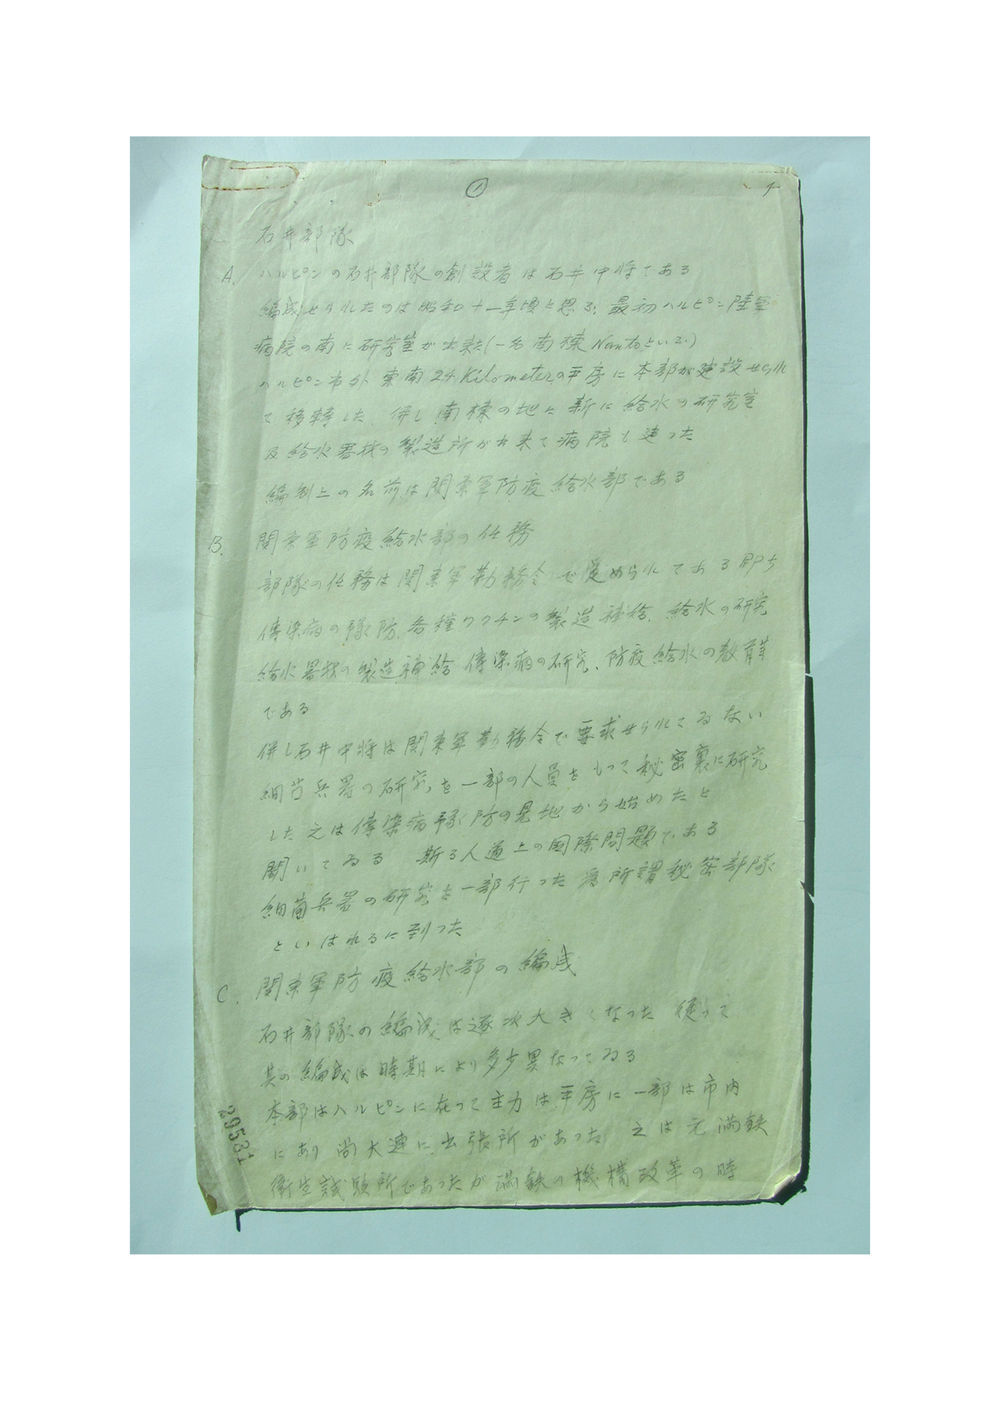 ①
石井部隊
A. ハルピンの石井部隊の創設者は石井中将である
編成せられたのは昭和十一年頃と思ふ、最初ハルピン陸軍
病院の南に研究室が出来た(一名南棟Nantoといふ)
ハルピン市外東南24Kilometerの平房に本部が建設せられ
て移転した 併し南棟の地に新に給水の研究室
及給水器材の製造所が出来て病院も建った
編制上の名前は関東軍防疫給水部である
B. 関東軍防疫給水部の任務
部隊の任務は関東軍勤務令で定められてある即ち
傳染病の豫防、各種ワクチンの製造補給、給水の研究
給水器材の製造補給 傳染病の研究、防疫給水の教育等
である
併し石井中将は関東軍勤務令で要求せられてゐない
細菌兵器の研究を一部の人員をもって秘密裏に研究
した 之は傳染病豫防の見地から始めたと
聞いてゐる 斯る人道上の国際問題である
細菌兵器の研究を一部行った為所謂秘密部隊
といはれるに到った
C. 関東軍防疫給水部の編成
石井部隊の編成は逐次大きくなった 従って
其の編成は時期により多少異なってゐる
本部はハルピンに在って主力は平房に一部は市内
にあり尚大連に出張所があった 之は元満鉄
衛生試験所であったが満鉄の機構改革の時
29531